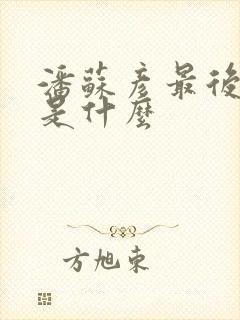 潘蘇彥最後
是什麼
方旭東